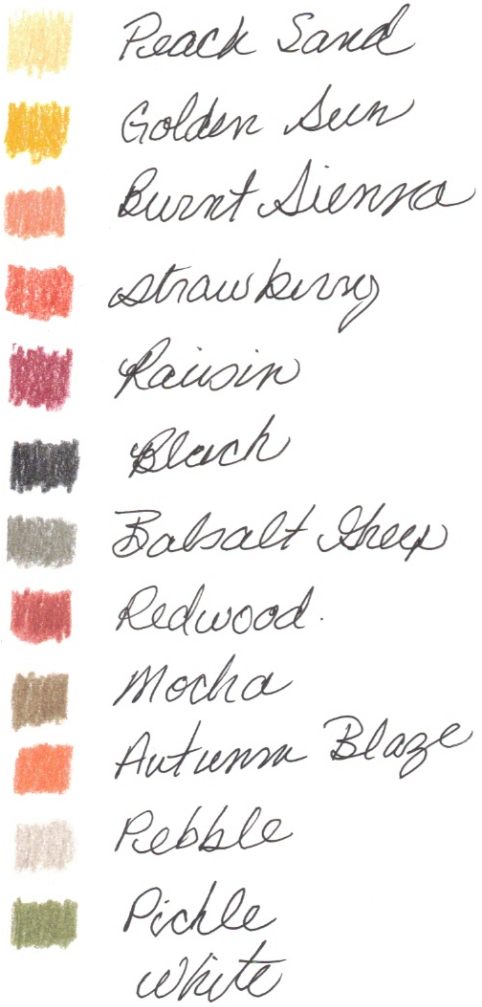 Peach Sand
Golden Sun
Burnt Sienna
strawberry
Raisin
Black
Balsalt Grey
Redwood.
Mocha
Autumn Blaze
Pebble
Pickle
White